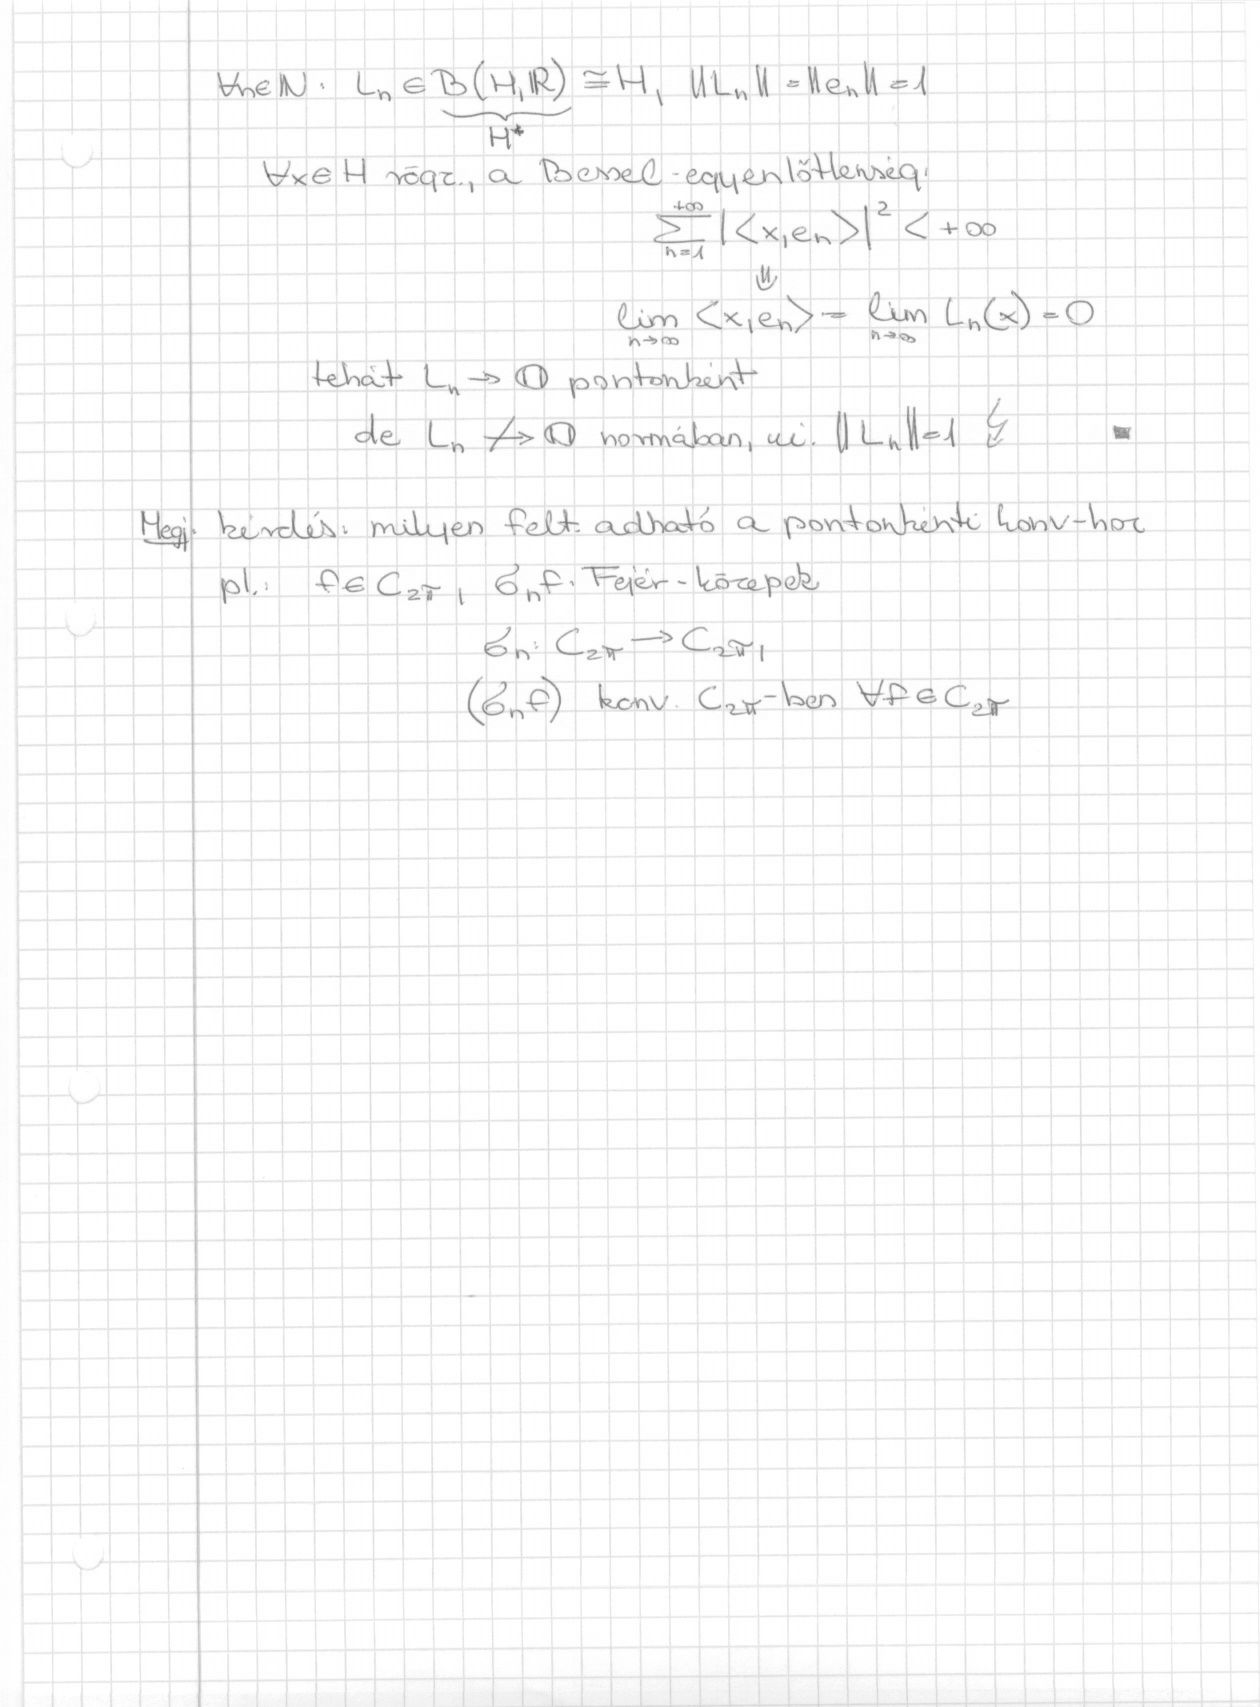 ∀n∈ℕ: Lₙ ∈ B(H,ℝ) ≅ H, ‖Lₙ‖ = ‖eₙ‖ = 1
H*
∀x∈H rögz., a Bessel-egyenlőtlenség:
∑_{n=1}^{+∞} |<x,eₙ>|² < +∞
⇓
lim_{n→∞} <x,eₙ> = lim_{n→∞} Lₙ(x) = 0
tehát Lₙ → 𝟘 pontonként
de Lₙ ↛ 𝟘 normában, ui. ‖Lₙ‖=1 ↯ ■
Megj: kérdés: milyen felt. adható a pontonkénti konv-hoz
pl.: f∈C_{2π}, σₙf: Fejér-közepek
σₙ: C_{2π} → C_{2π},
(σₙf) konv. C_{2π}-ben ∀f∈C_{2π}